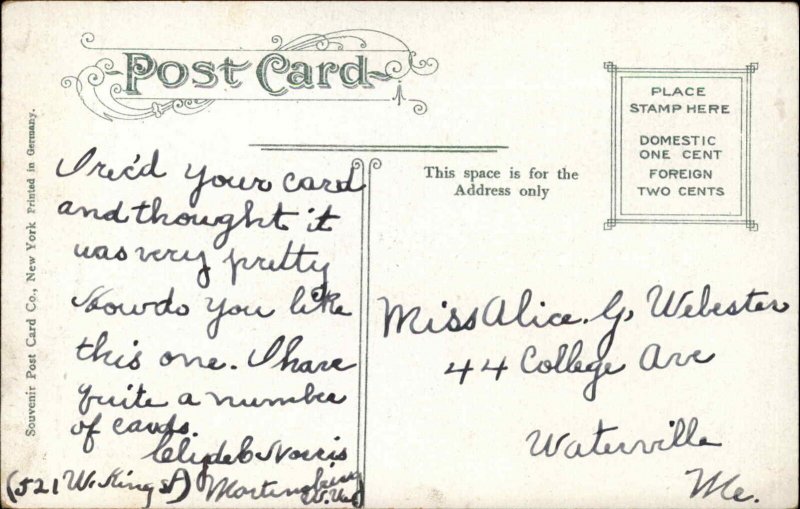 Post Card
PLACE
STAMP HERE
DOMESTIC
ONE CENT
FOREIGN
TWO CENTS
This space is for the
Address only
Souvenir Post Card Co., New York Printed in Germany.
I rec'd your card
and thought it
was very pretty
How do you like
this one. I have
quite a number
of cards.
Clyde C Norris
(521 W. King St) Martinsburg
W. Va
Miss Alice. G. Webester
44 College Ave
Waterville
Me.